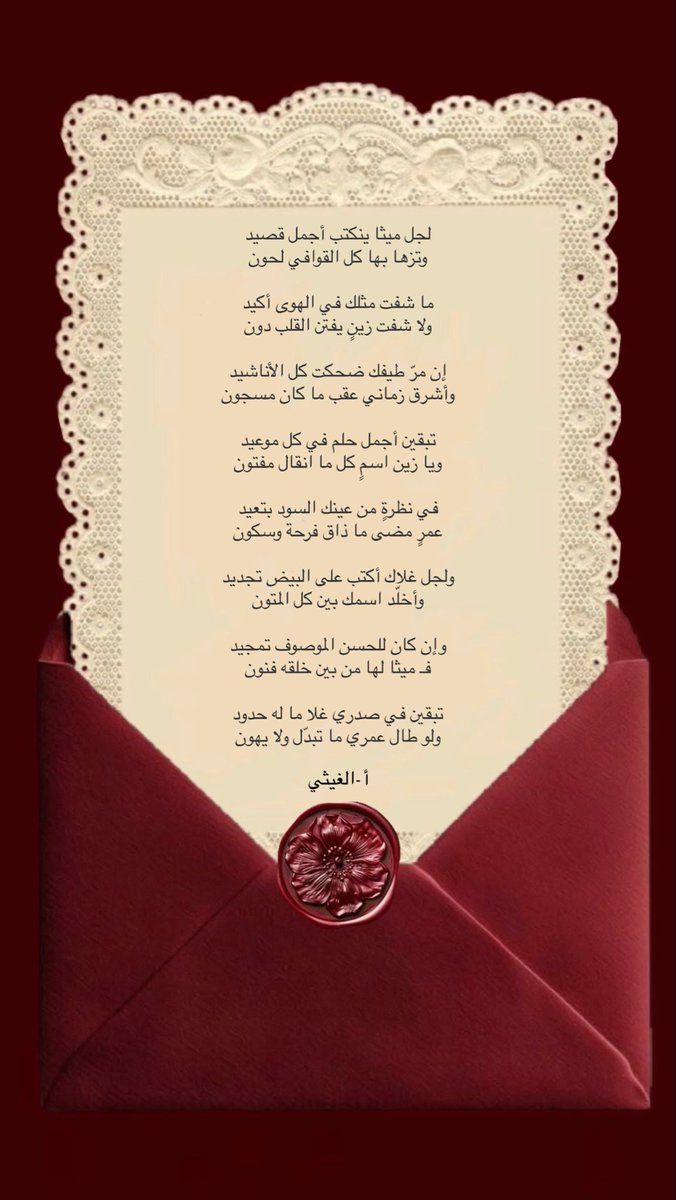 لجل ميثا ينكتب أجمل قصيد
وتزها بها كل القوافي لحون
ما شفت مثلك في الهوى أكيد
ولا شفت زينٍ يفتن القلب دون
إن مرّ طيفك ضحكت كل الأناشيد
وأشرق زماني عقب ما كان مسجون
تبقين أجمل حلم في كل موعيد
ويا زين اسمٍ كل ما انقال مفتون
في نظرةٍ من عينك السود بتعيد
عمرٍ مضى ما ذاق فرحة وسكون
ولجل غلاك أكتب على البيض تجديد
وأخلّد اسمك بين كل المتون
وإن كان للحسن الموصوف تمجيد
فـ ميثا لها من بين خلقه فنون
تبقين في صدري غلا ما له حدود
ولو طال عمري ما تبدّل ولا يهون
أ-الغيثي